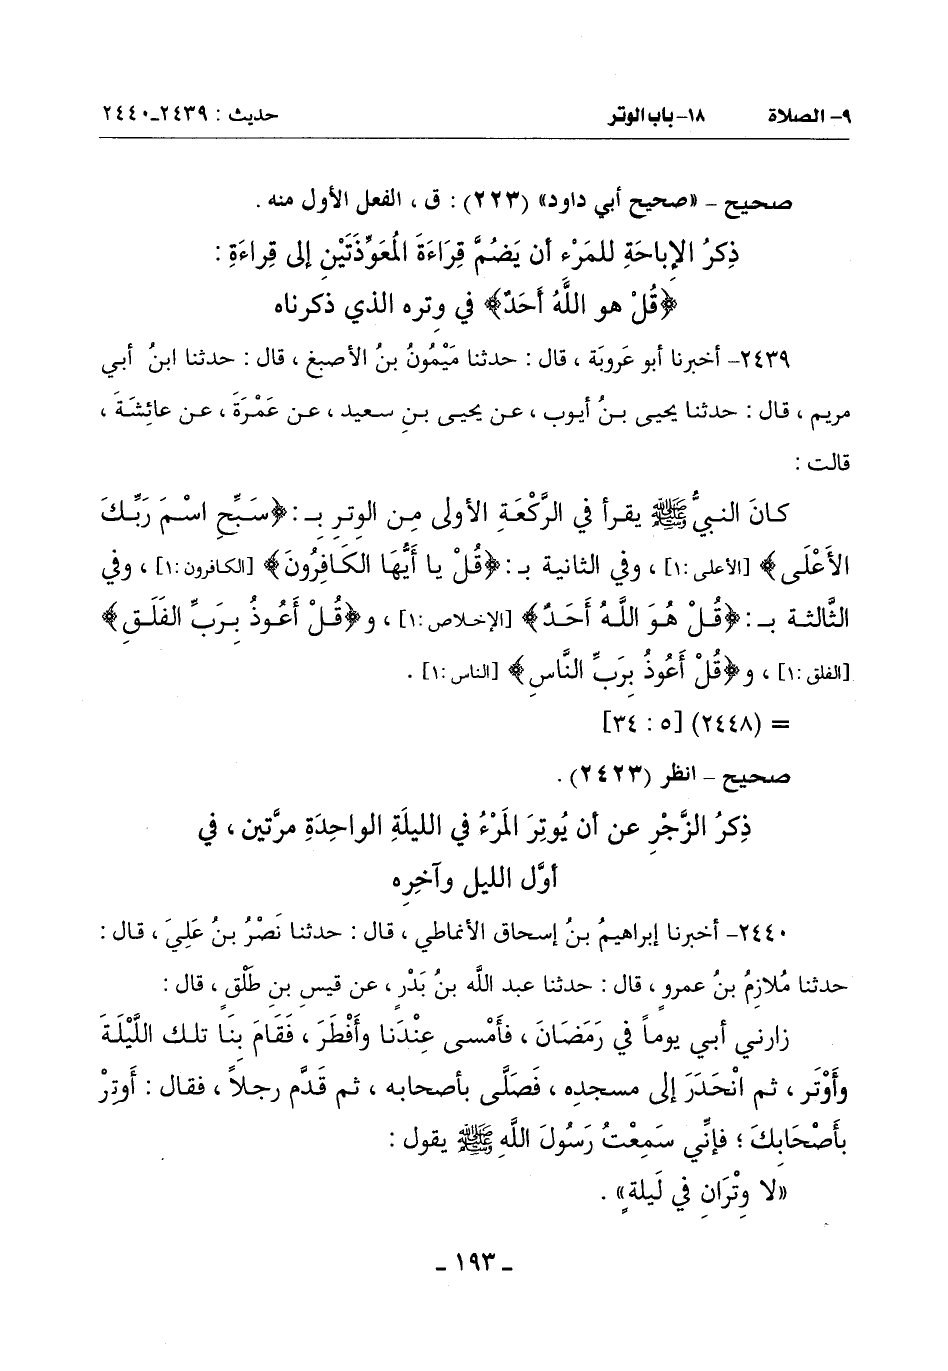 ٩- الصلاة ١٨- باب الوتر حديث : ٢٤٣٩-٢٤٤٠
صحيح - «صحيح أبي داود» (٢٢٣) : ق ، الفعل الأول منه .
ذِكرُ الإباحَةِ للمَرْءِ أن يَضُمَّ قِرَاءَةَ المُعَوِّذَتَيْنِ إلى قِراءَةِ :
﴿قُلْ هو اللَّهُ أَحَدٌ﴾ في وتره الذي ذكرناه
٢٤٣٩- أخبرنا أبو عَروبَة ، قال : حدثنا مَيْمُونُ بنُ الأصبغ ، قال : حدثنا ابنُ أبي
مريم ، قال : حدثنا يحيى بنُ أيوب ، عن يحيى بنِ سعيد ، عن عَمْرَةَ ، عن عائِشَةَ ،
قالت :
كانَ النبيُّ ﷺ يقرأ في الرَّكْعَةِ الأولى مِن الوترِ بـ : ﴿سَبِّحِ اسْمَ رَبِّكَ
الأَعْلَى﴾ [الأعلى :١] ، وفي الثانية بـ : ﴿قُلْ يا أَيُّهَا الكَافِرُونَ﴾ [الكافرون :١] ، وفي
الثَّالثة بـ : ﴿قُلْ هُوَ اللَّهُ أَحَدٌ﴾ [الإخلاص :١] ، و﴿قُلْ أَعُوذُ بِرَبِّ الفَلَقِ﴾
[الفلق :١] ، و﴿قُلْ أَعُوذُ بِرَبِّ النَّاسِ﴾ [الناس :١] .
= (٢٤٤٨) [٥ : ٣٤]
صحيح - انظر (٢٤٢٣) .
ذِكرُ الزَّجْرِ عن أن يُوتِرَ المَرْءُ في الليلَةِ الواحِدَةِ مرَّتين ، في
أوَّل الليل وآخِرِه
٢٤٤٠- أخبرنا إبراهيمُ بنُ إسحاق الأنماطي ، قال : حدثنا نَصْرُ بنُ عَلِيَ ، قال :
حدثنا مُلازِمُ بنُ عمرو ، قال : حدثنا عبد اللَّه بنُ بَدْرٍ ، عن قيسِ بنِ طَلْقٍ ، قال :
زارني أبي يوماً في رَمَضَانَ ، فأمْسى عِنْدَنا وأفْطَرَ ، فَقَامَ بِنَا تلك اللَّيْلَةَ
وأَوْتَر ، ثم انْحَدَرَ إلى مسجدِه ، فَصَلَّى بأصحابه ، ثم قَدَّم رجلاً ، فقال : أَوتِرْ
بأَصْحَابِكَ ؛ فإنِّي سَمِعْتُ رَسُولَ اللَّهِ ﷺ يقول :
«لا وِتْرَانِ في لَيلةٍ» .
- ١٩٣ -